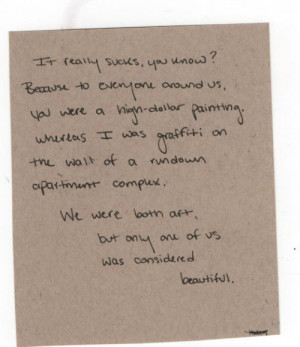 It really sucks, you know?
Because to everyone around us,
you were a high-dollar painting.
whereas I was graffiti on
the wall of a rundown
apartment complex.
We were both art,
but only one of us
was considered
beautiful.